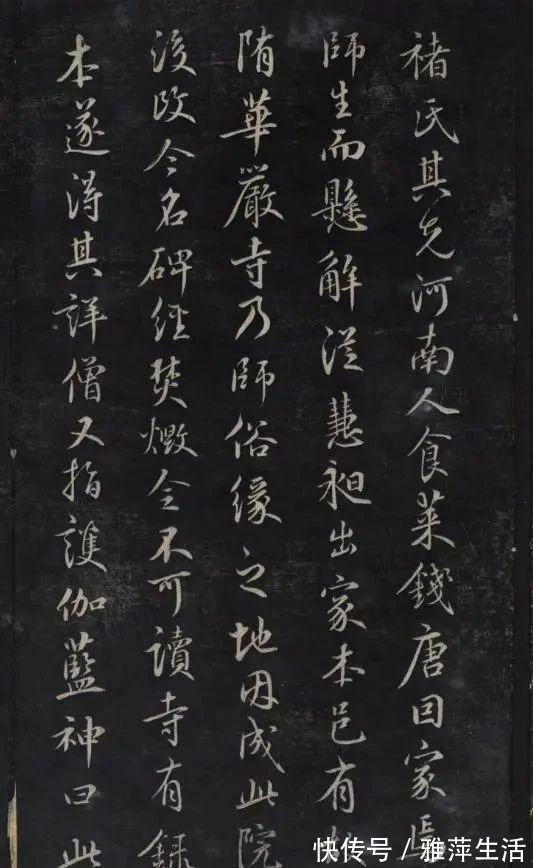 褚氏其先河南人食菜錢唐因家焉
師生而懸解從慧昶出家本邑有
隋華嚴寺乃師俗緣之地因成此院
後改今名碑經焚燬今不可讀寺有錄
本遂得其詳僧又指護伽藍神曰此
快传号 / 雅萍生活